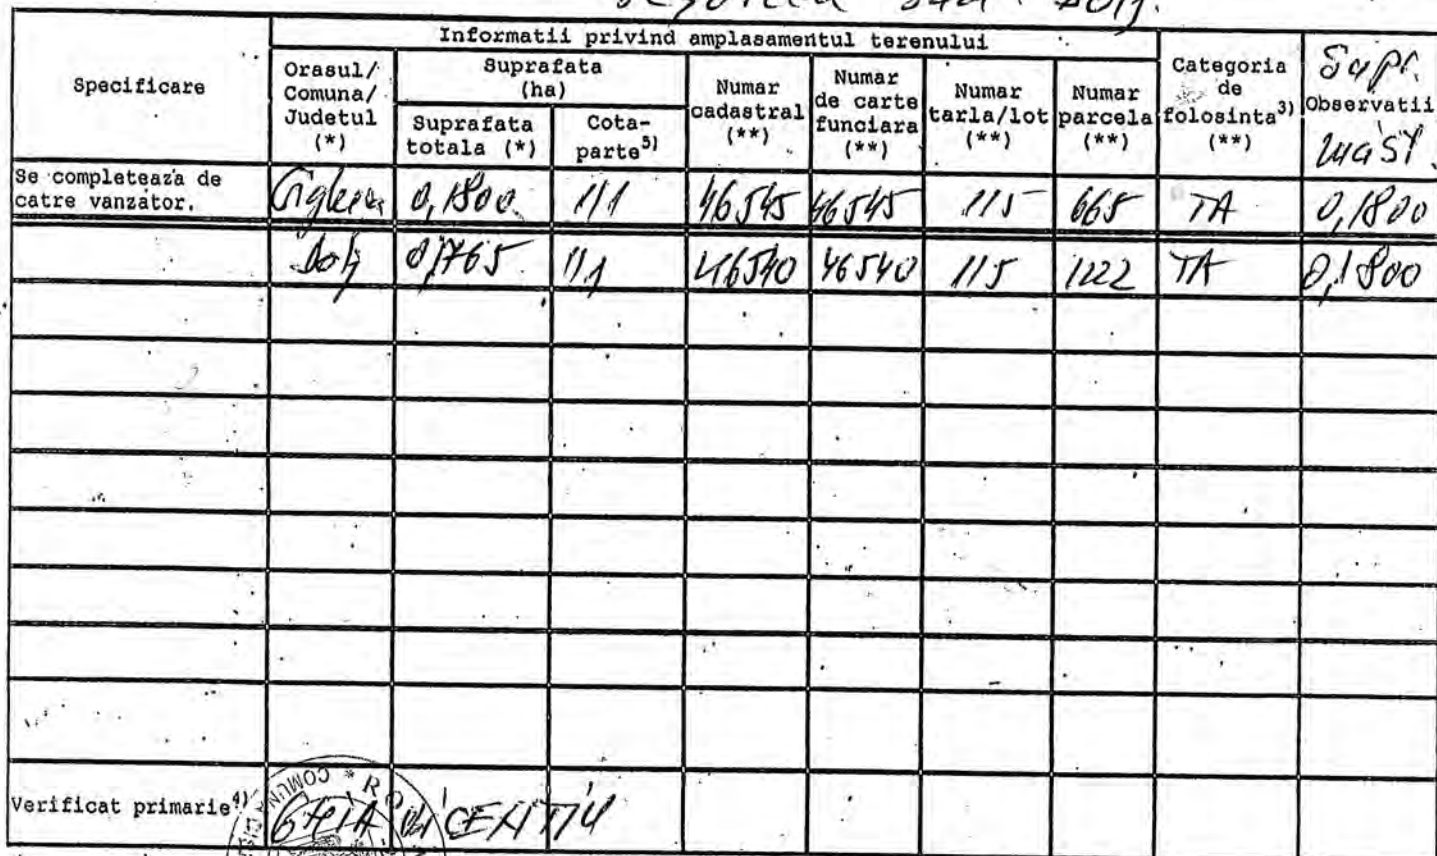 Informatii privind amplasamentul terenului
Specificare
Orasul/
Comuna/
Judetul
(*)
Suprafata
(ha)
Suprafata
totala (*)
Cota-
parte5)
Numar
cadastral
(**)
Numar
de carte
funciara
(**)
Numar
tarla/lot
(**)
Numar
parcela
(**)
Categoria
de
folosinta3)
(**)
Supr.
Observatii
mas
Se completeaza de
catre vanzator.
0,1800 1/1 46545 46545 115 665 TA 0,1800
Dolj 0,1765 1/1 46540 46540 115 1222 TA 0,1800
Verificat primarie4)
COMUNA